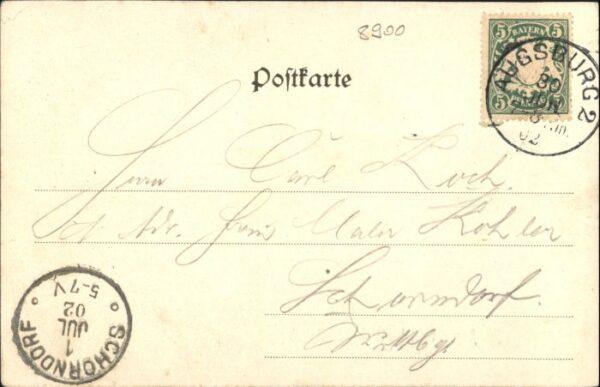 8900
5 BAYERN 5
5 5
AUGSBURG 2
30
JUN
8
02
Postkarte
Herrn Carl Koch.
Adr. Herrn Maler Kohler
Schorndorf.
Württbg.
SCHORNDORF
1
JUL
02
5-7V